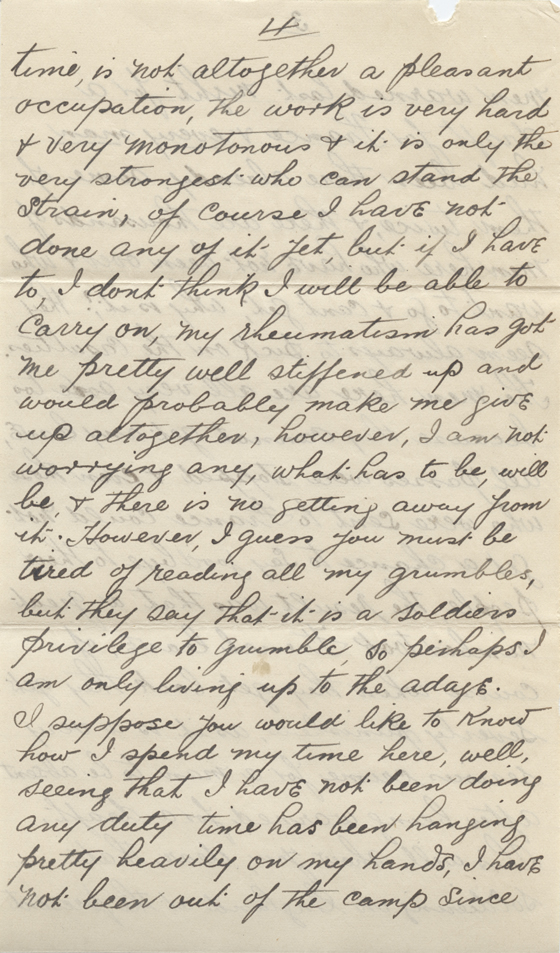 4
time, is not altogether a pleasant
occupation, the work is very hard
& very monotonous & it is only the
very strongest who can stand the
strain, of course I have not
done any of it yet, but if I have
to, I dont think I will be able to
carry on, my rheumatism has got
me pretty well stiffened up and
would probably make me give
up altogether, however, I am not
worrying any, what has to be, will
be, & there is no getting away from
it. However, I guess you must be
tired of reading all my grumbles,
but they say that it is a soldiers
privilege to grumble, so perhaps I
am only living up to the adage.
I suppose you would like to know
how I spend my time here, well,
seeing that I have not been doing
any duty time has been hanging
pretty heavily on my hands, I have
not been out of the camp since